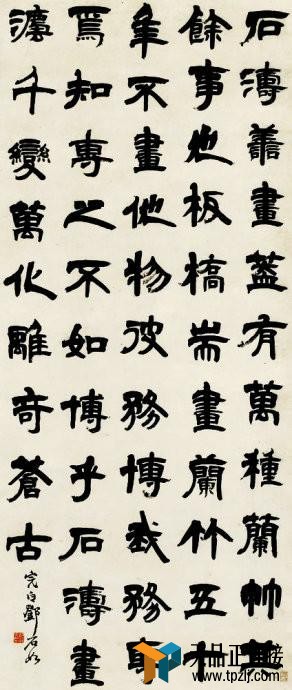 石濤善畫蓋有萬種蘭竹其
餘事也板橋耑畫蘭竹五十
年不畫他物彼務博我務專
焉知專之不如博乎石濤畫
灋千變萬化離奇蒼古
完白鄧石如
天品正
www.tpzlj.com